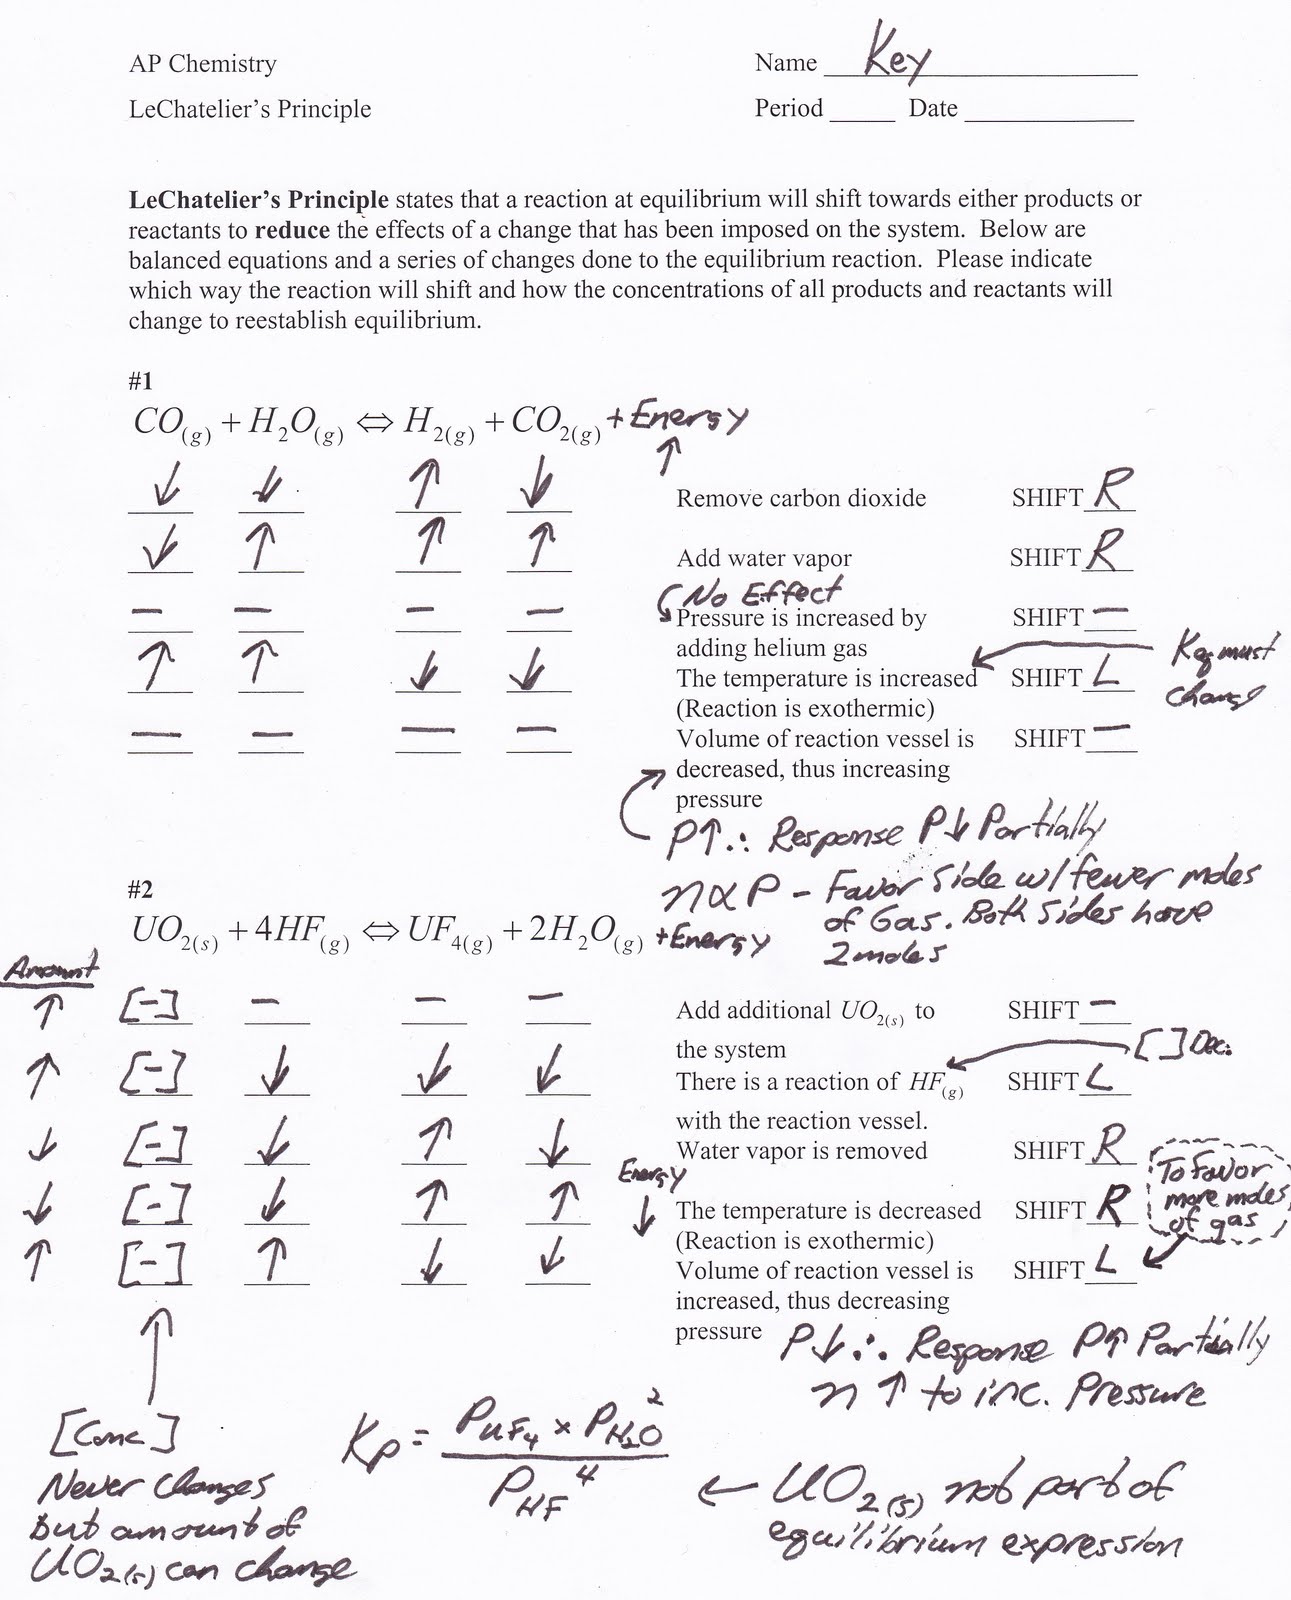 AP Chemistry
Name Key
LeChatelier's Principle
Period _____ Date _____
LeChatelier's Principle states that a reaction at equilibrium will shift towards either products or
reactants to reduce the effects of a change that has been imposed on the system. Below are
balanced equations and a series of changes done to the equilibrium reaction. Please indicate
which way the reaction will shift and how the concentrations of all products and reactants will
change to reestablish equilibrium.
#1
CO(g) + H2O(g) ⇔ H2(g) + CO2(g) + Energy
↑
↓ ↓ ↑ ↓ Remove carbon dioxide SHIFT R
↓ ↑ ↑ ↑ Add water vapor SHIFT R
No Effect
– – – – Pressure is increased by SHIFT –
adding helium gas
↑ ↑ ↓ ↓ The temperature is increased SHIFT L
Keq must
change
(Reaction is exothermic)
– – – – Volume of reaction vessel is SHIFT –
decreased, thus increasing
pressure
P↑ ∴ Response P↓ Partially
n ∝ P – Favor Side w/ fewer moles
of Gas. Both sides have
2 moles
#2
UO2(s) + 4HF(g) ⇔ UF4(g) + 2H2O(g) + Energy
Amount
↑ [–] – – – Add additional UO2(s) to SHIFT –
the system
[ ] Dec.
↑ [–] ↓ ↓ ↓ There is a reaction of HF(g) SHIFT L
with the reaction vessel.
↓ [–] ↓ ↑ ↓ Water vapor is removed SHIFT R
Energy
↓
↓ [–] ↓ ↑ ↑ The temperature is decreased SHIFT R
(Reaction is exothermic)
To Favor
more moles
of gas
↑ [–] ↑ ↓ ↓ Volume of reaction vessel is SHIFT L
increased, thus decreasing
pressure
P↓ ∴ Response P↑ Partially
n ↑ to inc. Pressure
[Conc]
Never Changes
but amount of
UO2(s) can change
Kp = PUF4 × PH2O^2 / PHF^4
← UO2(s) not part of
equilibrium expression